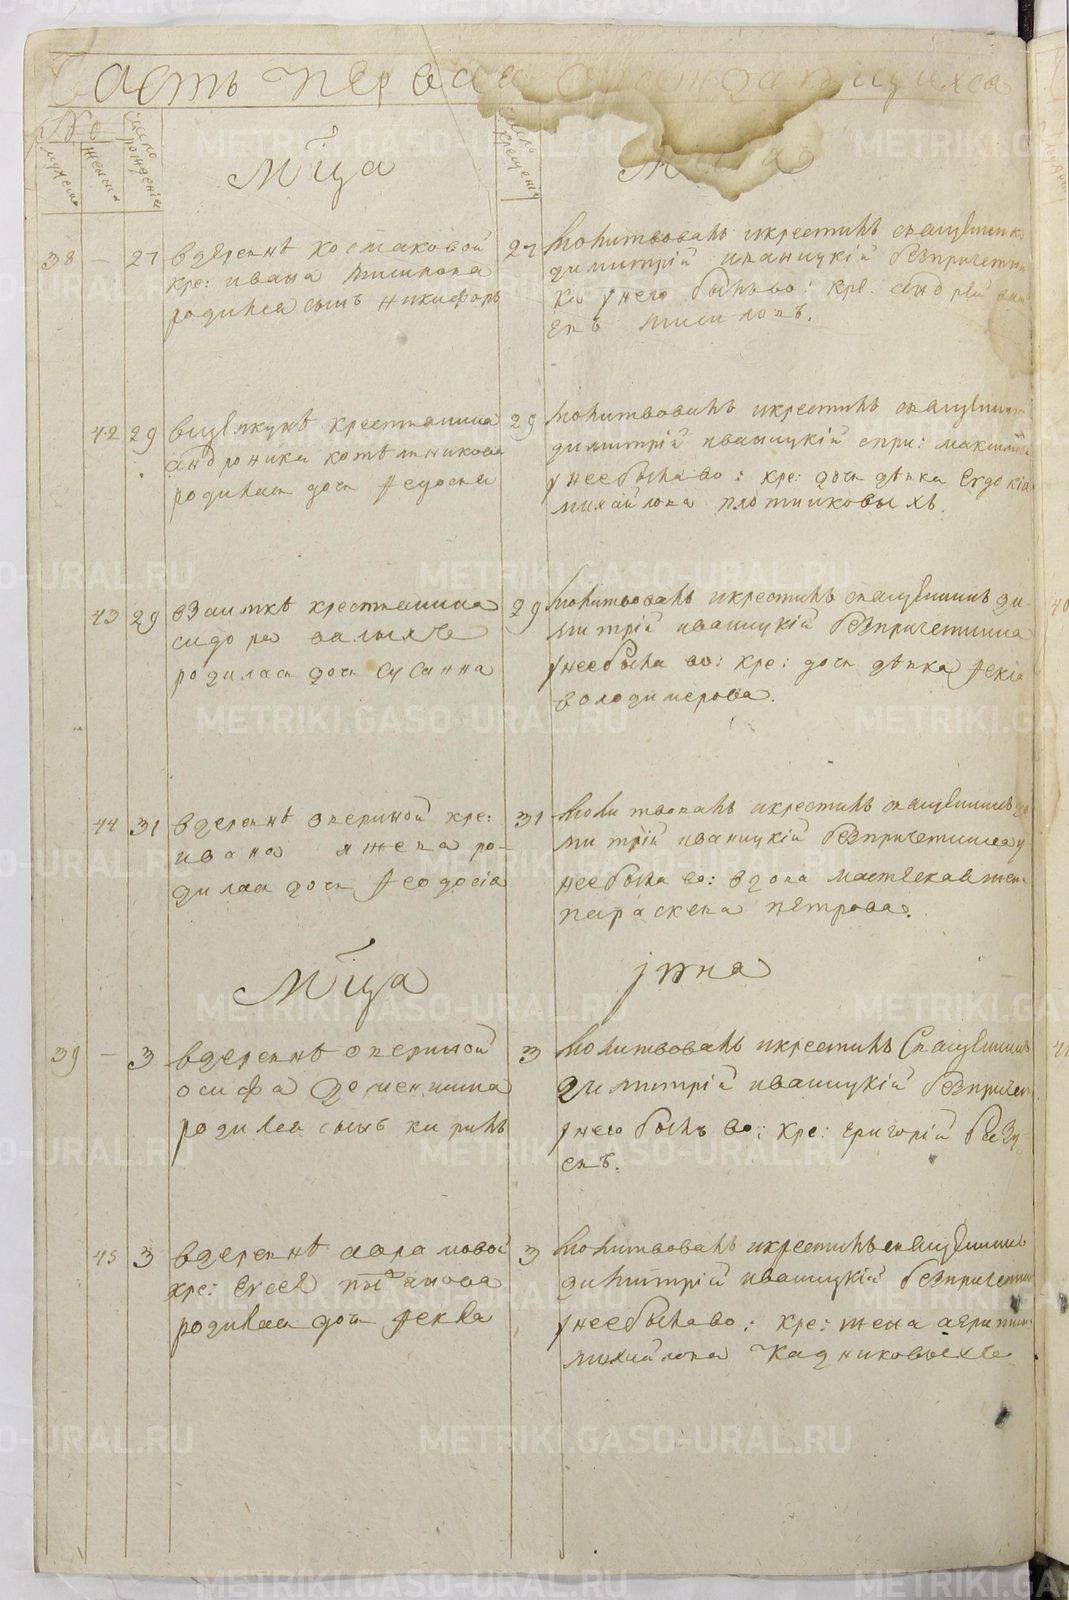 Часть первая о рождающихся
№
мужеска
женска
число рождения
число крещения
Мца
Мая
38 — 27 вдеревнѣ костаковой
кре: ивана
родился сынъ никифоръ
27 молитвовалъ икрестилъ священникъ
димитрій иваницкій безпричетни
ка унего былъ во: кре: андрей
42 29 крестьянина
андроника котельникова
родилась дочь федосья
29 молитвовалъ икрестилъ священникъ
димитрій иваницкій спри:
унее была во: кре: дочь дѣвка Евдокія
михайлова плотниковыхъ.
43 29 взаимкѣ крестьянина
сидора
родилась дочь Сусанна
29 молитвовалъ икрестилъ священникъ ди
митрій иваницкій безпричетника
унее была во: кре: дочь дѣвка фекла
володимерова.
44 31 вдеревнѣ кре:
ивана жена ро-
дилась дочь феодосія
31 молитвовалъ икрестилъ священникъ ди
митрій иваницкій безпричетника у
нее была во: вдова
параскева петрова.
Мца
июня
39 — 3 вдеревнѣ
осифа деменшина
родился сынъ кирилъ
3 молитвовалъ икрестилъ Священникъ
димитрій иваницкій безпричет
унего былъ во: кре: григорій
45 3 вдеревнѣ аврамовой
кре: Евсея
родилась дочь фекла
3 молитвовалъ икрестилъ священникъ
димитрій иваницкій безпричетника
унее была во: кре: жена
михайлова Кадниковыхъ
METRIKI.GASO-URAL.RU